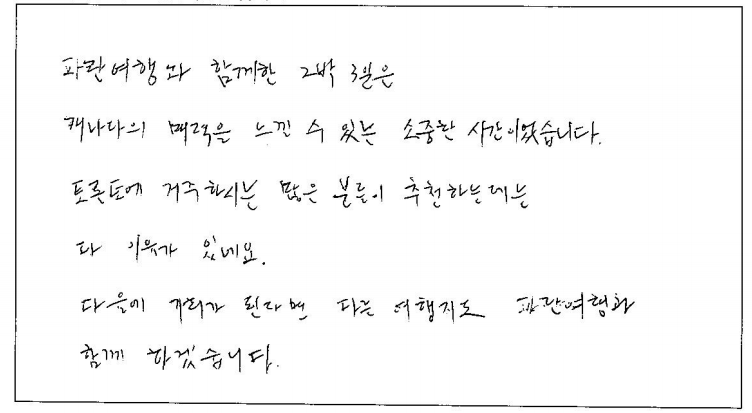 파란여행과 함께한 2박 3일은
캐나다의 매력을 느낀 수 있는 소중한 시간이었습니다.
토론토에 거주하시는 많은 분들이 추천하는데는
다 이유가 있네요.
다음에 기회가 된다면 다른 여행지도 파란여행과
함께 하겠습니다.